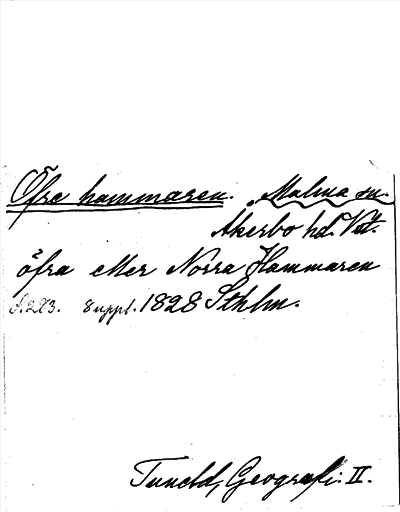 Öfre hammaren. Malma sn.
Åkerbo hd. Vstm.
öfra eller Norra Hammaren
s. 283. 8 uppl. 1828 Sthlm.
Tuneld, Geografi. II.